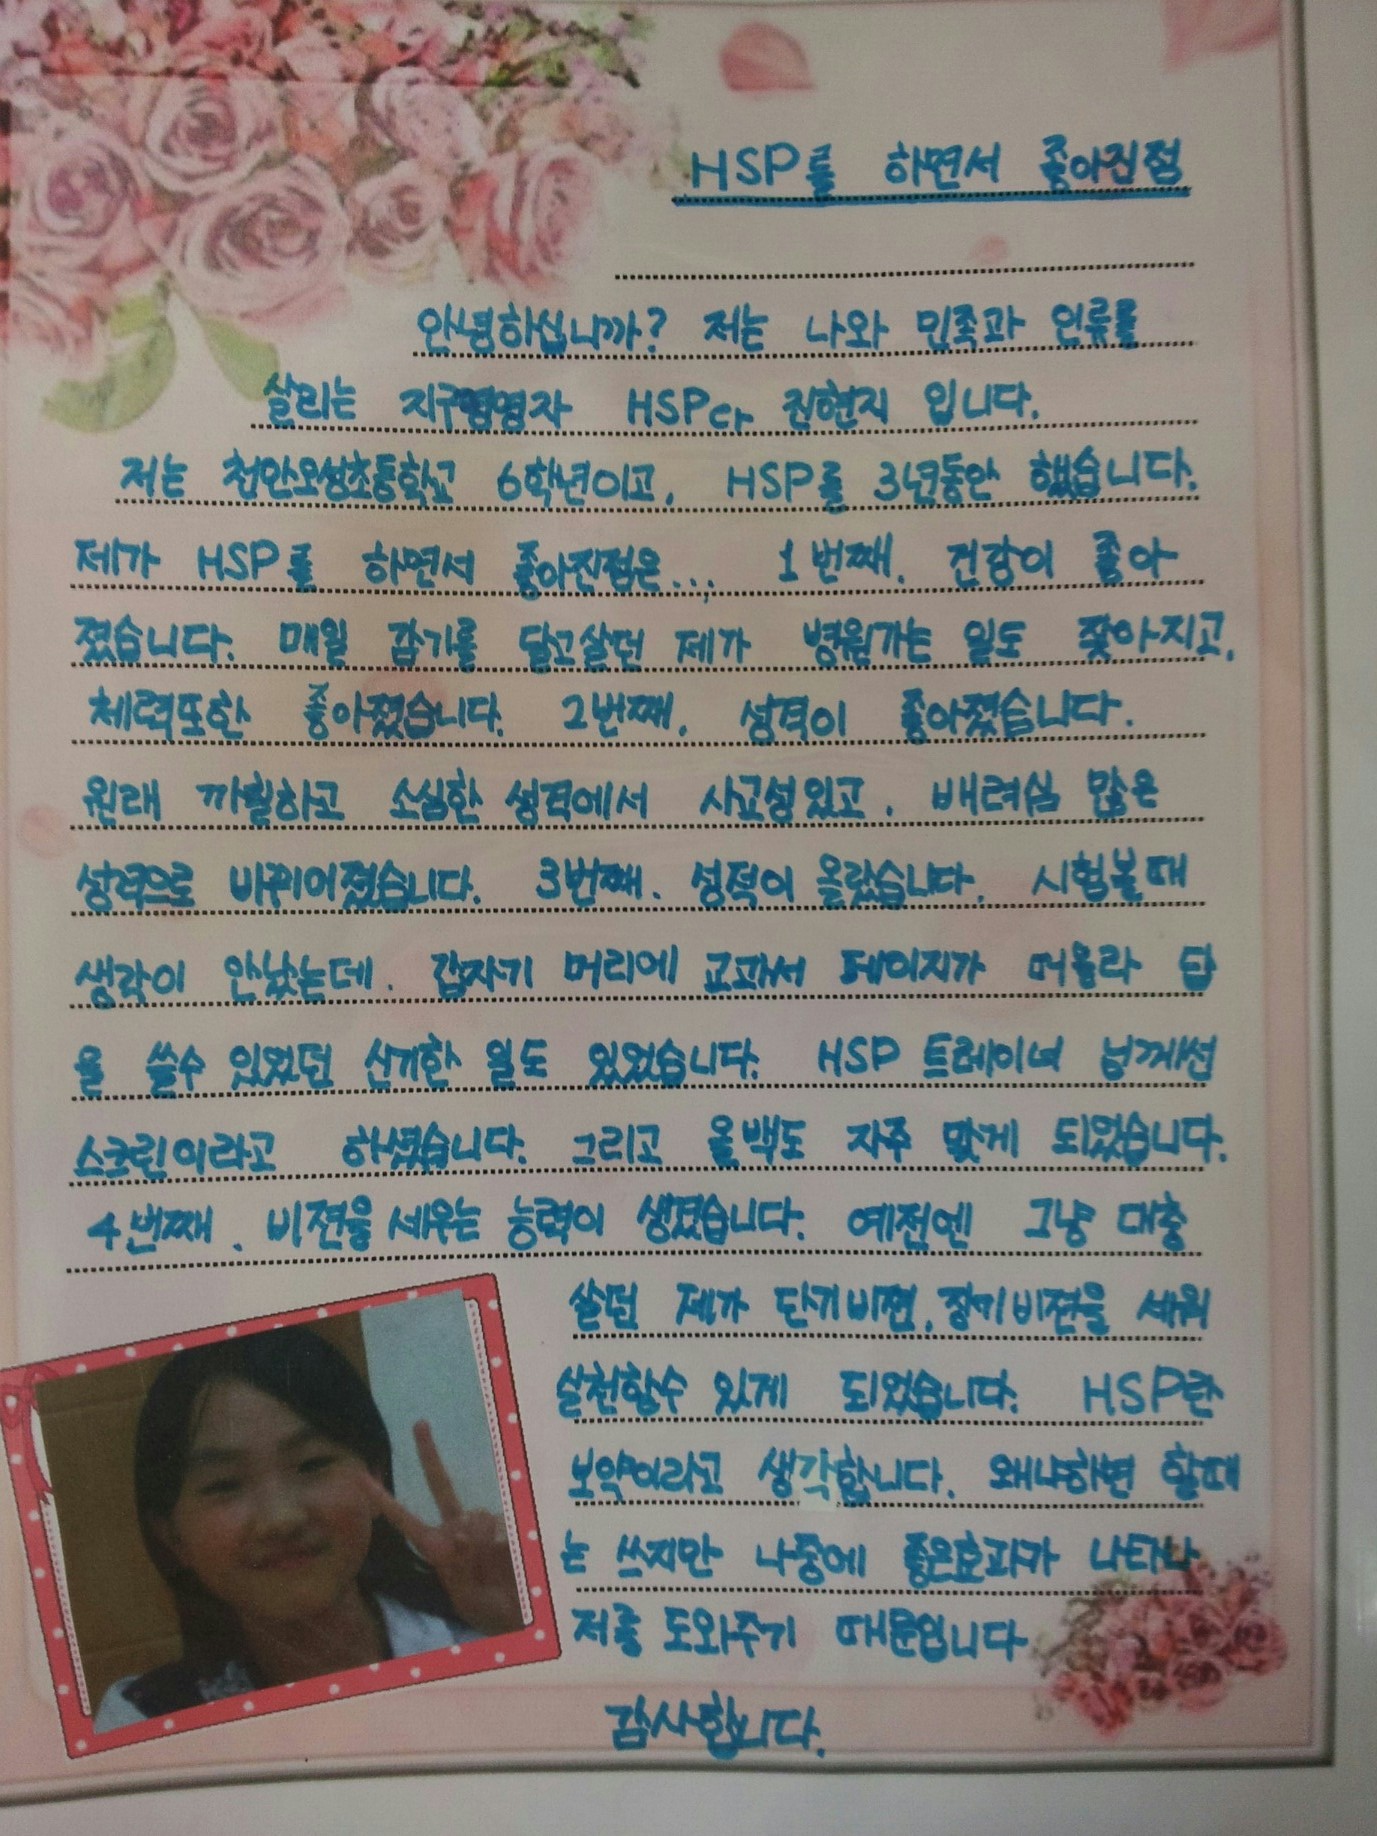 HSP를 하면서 좋아진점
안녕하십니까? 저는 나와 민족과 인류를
살리는 지구경영자 HSPer 권현지 입니다.
저는 천안오성초등학교 6학년이고, HSP를 3년동안 했습니다.
제가 HSP를 하면서 좋아진점은... 1번째. 건강이 좋아
졌습니다. 매일 감기를 달고살던 제가 병원가는 일도 잦아지고,
체력또한 좋아졌습니다. 2번째. 성격이 좋아졌습니다.
원래 까칠하고 소심한 성격에서 사교성있고, 배려심 많은
성격으로 바뀌어졌습니다. 3번째. 성적이 올랐습니다. 시험볼때
생각이 안났는데, 갑자기 머리에 교과서 페이지가 떠올라 답
을 쓸수 있었던 신기한 일도 있었습니다. HSP 트레이너 님께선
스크린이라고 하셨습니다. 그리고 올백도 자주 맞게 되었습니다.
4번째. 비젼을 세우는 능력이 생겼습니다. 예전엔 그냥 대충
살던 제가 단기비젼, 장기비젼을 세워
실천할수 있게 되었습니다. HSP란
보약이라고 생각합니다. 왜냐하면 할때
는 쓰지만 나중에 좋은효과가 나타나
저를 도와주기 때문입니다
감사합니다.